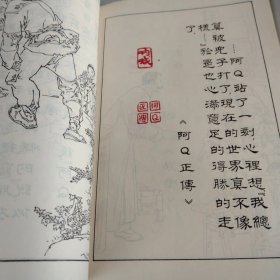 …阿Q站了一刻心裡想“我總
算被兒子打了現在的世界真不像
樣…”於是也心滿意足的得勝的走
了
《阿Q正傳》